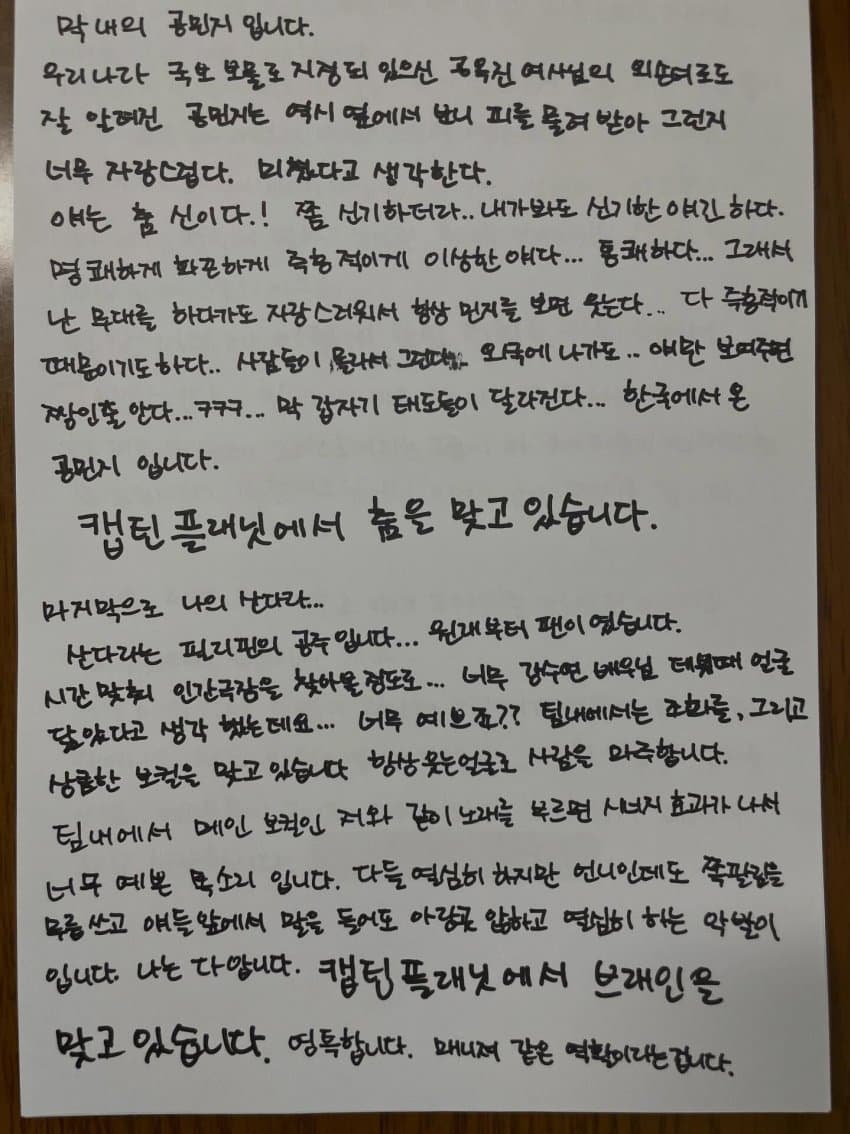 막내의 공민지 입니다.
우리나라 국보 보물로 지정되 있으신 공옥진 여사님의 외손녀로도
잘 알려진 공민지는 역시 옆에서 보니 피를 물려 받아 그런지
너무 자랑스럽다. 미쳤다고 생각한다.
얘는 춤 신이다.! 쫌 신기하더라.. 내가봐도 신기한 얘긴 하다.
명쾌하게 화끈하게 즉흥적이게 이상한 얘다... 통쾌하다... 그래서
난 무대를 하다가도 자랑스러워서 항상 민지를 보면 웃는다... 다 즉흥적이기
때문이기도하다.. 사람들이 몰라서 그런데.. 외국에 나가도.. 얘만 보여주면
짱인줄 안다...ㅋㅋㅋ... 막 갑자기 태도들이 달라진다... 한국에서 온
공민지 입니다.
캡틴플래닛에서 춤을 맞고 있습니다.
마지막으로 나의 산다라...
산다라는 필리핀의 공주입니다... 원래부터 팬이였습니다.
시간맞춰 인간극장을 찾아볼정도로... 너무 강수연 배우님 데뷔때 얼굴
닮았다고 생각 했는데요... 너무 예쁘죠?? 팀내에서는 조화를, 그리고
상큼한 보컬을 맞고 있습니다 항상웃는얼굴로 사람을 마주합니다.
팀내에서 메인 보컬인 저와 같이 노래를 부르면 시너지 효과가 나서
너무 예쁜 목소리 입니다. 다들 열심히 하지만 언니인데도 쪽팔림을
무릅쓰고 얘들앞에서 말을 들어도 아랑곳 안하고 열심히 하는 악발이
입니다. 나는 다압니다. 캡틴플래닛에서 브래인을
맞고 있습니다. 영특합니다. 매니져 같은 역활이라는겁니다.